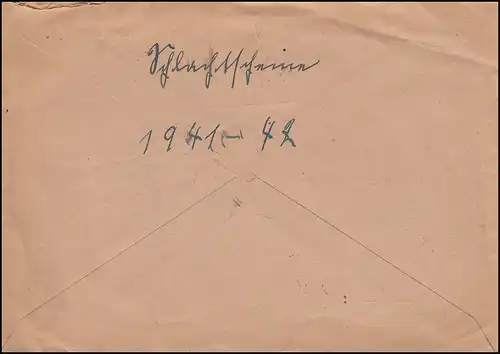 Schlachtscheine
1941-42